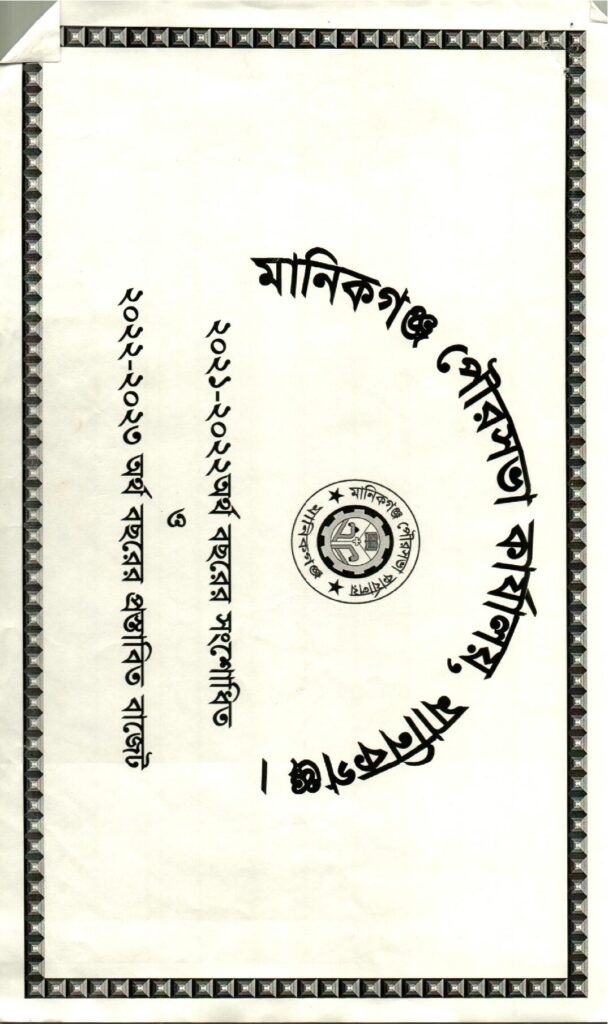 মানিকগঞ্জ পৌরসভা কার্যালয়, মানিকগঞ্জ।
মানিকগঞ্জ পৌরসভা কার্যালয়
মানিকগঞ্জ
২০২১-২০২২অর্থ বছরের সংশোধিত
ও
২০২২-২০২৩ অর্থ বছরের প্রস্তাবিত বাজেট